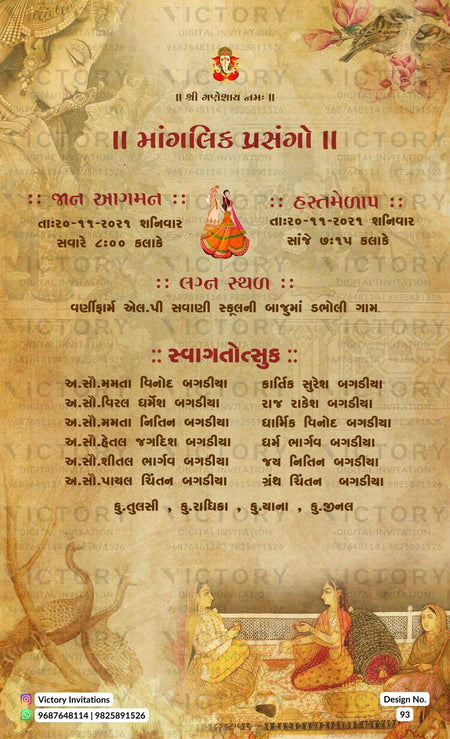 ॥ શ્રી ગણેશાય નમઃ ॥
॥ માંગલિક પ્રસંગો ॥
:: જાન આગમન ::
તાઃ૨૦-૧૧-૨૦૨૧ શનિવાર
સવારે ૮ઃ૦૦ કલાકે
:: હસ્તમેળાપ ::
તાઃ૨૦-૧૧-૨૦૨૧ શનિવાર
સાંજે ૭ઃ૧૫ કલાકે
:: લગ્ન સ્થળ ::
વર્ણીફાર્મ એલ.પી સવાણી સ્કૂલની બાજુમાં ડભોલી ગામ.
:: સ્વાગતોત્સુક ::
અ.સૌ.મમતા વિનોદ બગડીયા
અ.સૌ.વિરલ ધર્મેશ બગડીયા
અ.સૌ.મમતા નિતિન બગડીયા
અ.સૌ.હેતલ જગદિશ બગડીયા
અ.સૌ.શીતલ ભાર્ગવ બગડીયા
અ.સૌ.પાયલ ચિંતન બગડીયા
કાર્તિક સુરેશ બગડીયા
રાજ રાકેશ બગડીયા
ધાર્મિક વિનોદ બગડીયા
ધર્મ ભાર્ગવ બગડીયા
જય નિતિન બગડીયા
ગ્રંથ ચિંતન બગડીયા
કુ.તુલસી , કુ.રાધિકા , કુ.યાના , કુ.જીનલ
VICTORY
DIGITAL INVITATION
9687648114 | 9825891526
Victory Invitations
9687648114 | 9825891526
Design No.
93